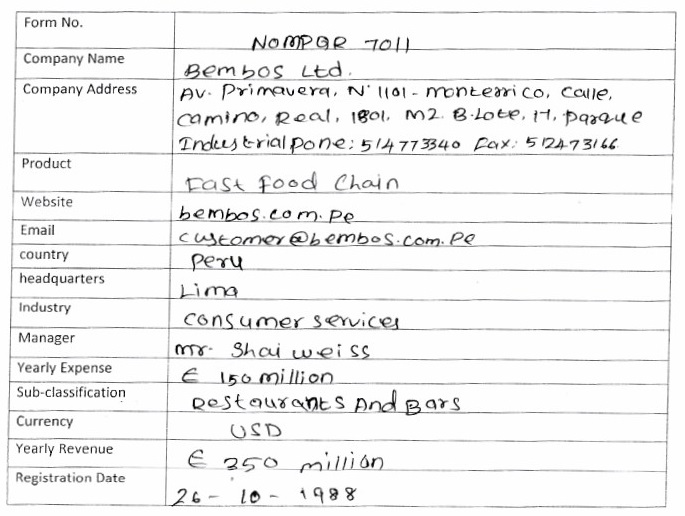 Form No. NOMPQR 7011
Company Name Bembos Ltd.
Company Address AV. Primavera, N° 1101 - monterrico, calle,
camino, Real, 1801, M2. B.Lote, 17, parque
Industrial pone: 514773340 fax: 512473166
Product Fast Food Chain
Website bembos.com.Pe
Email customer@bembos.com.Pe
country Peru
headquarters Lima
Industry consumer services
Manager mr. Shai weiss
Yearly Expense € 150 million
Sub-classification Restaurants And Bars
Currency USD
Yearly Revenue € 350 million
Registration Date 26 - 10 - 1988